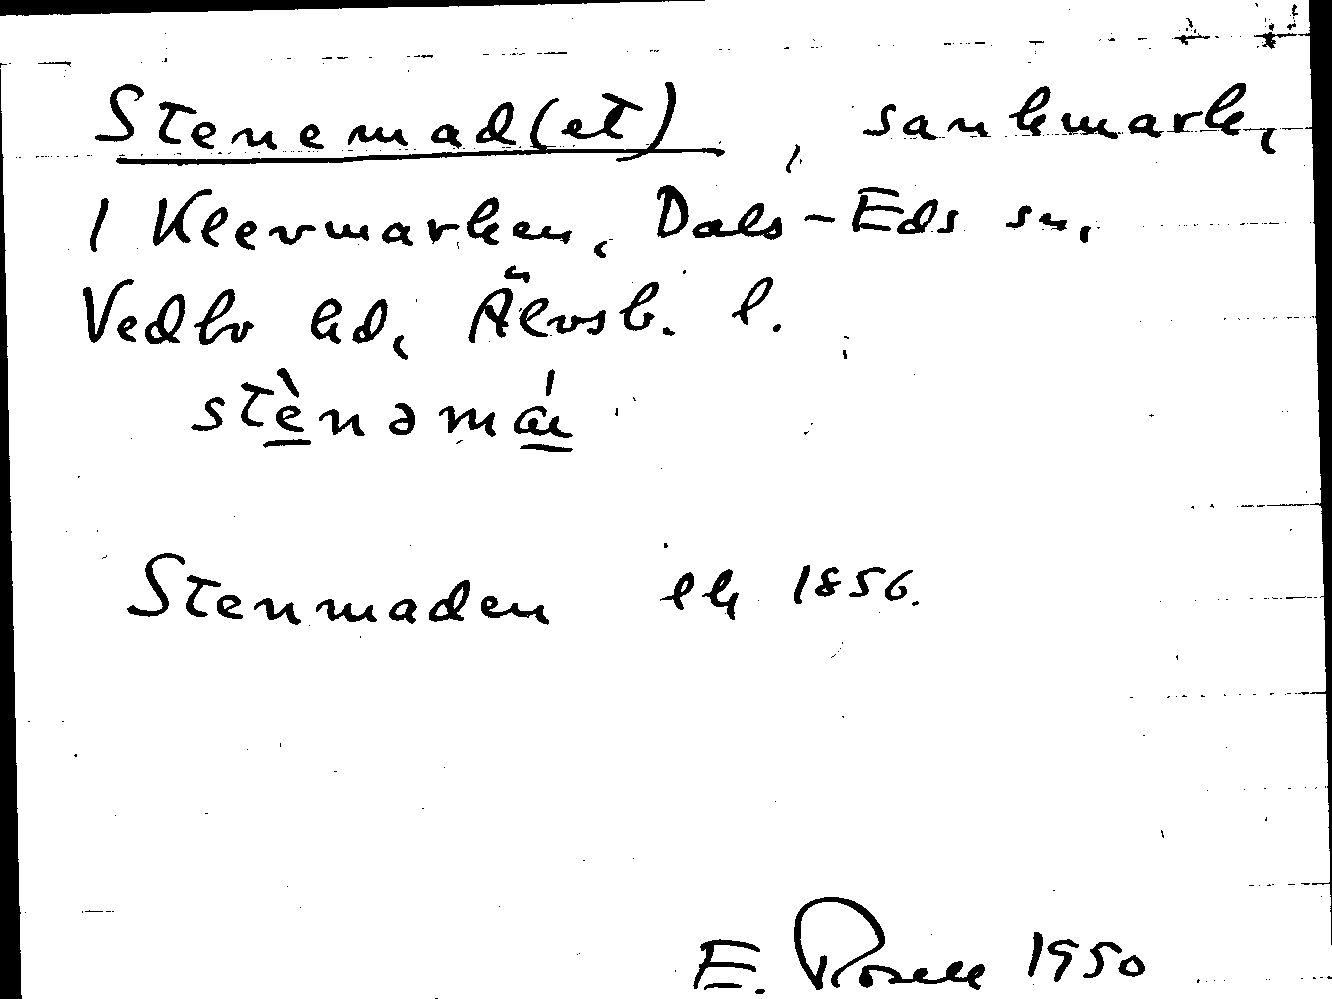 Stenemad(et), sankmark,
1 Klevmarken, Dals-Eds sn,
Vedbo hd, Älvsb. l.
stènəmá
Stenmaden lk 1856.
E. Rosell 1950